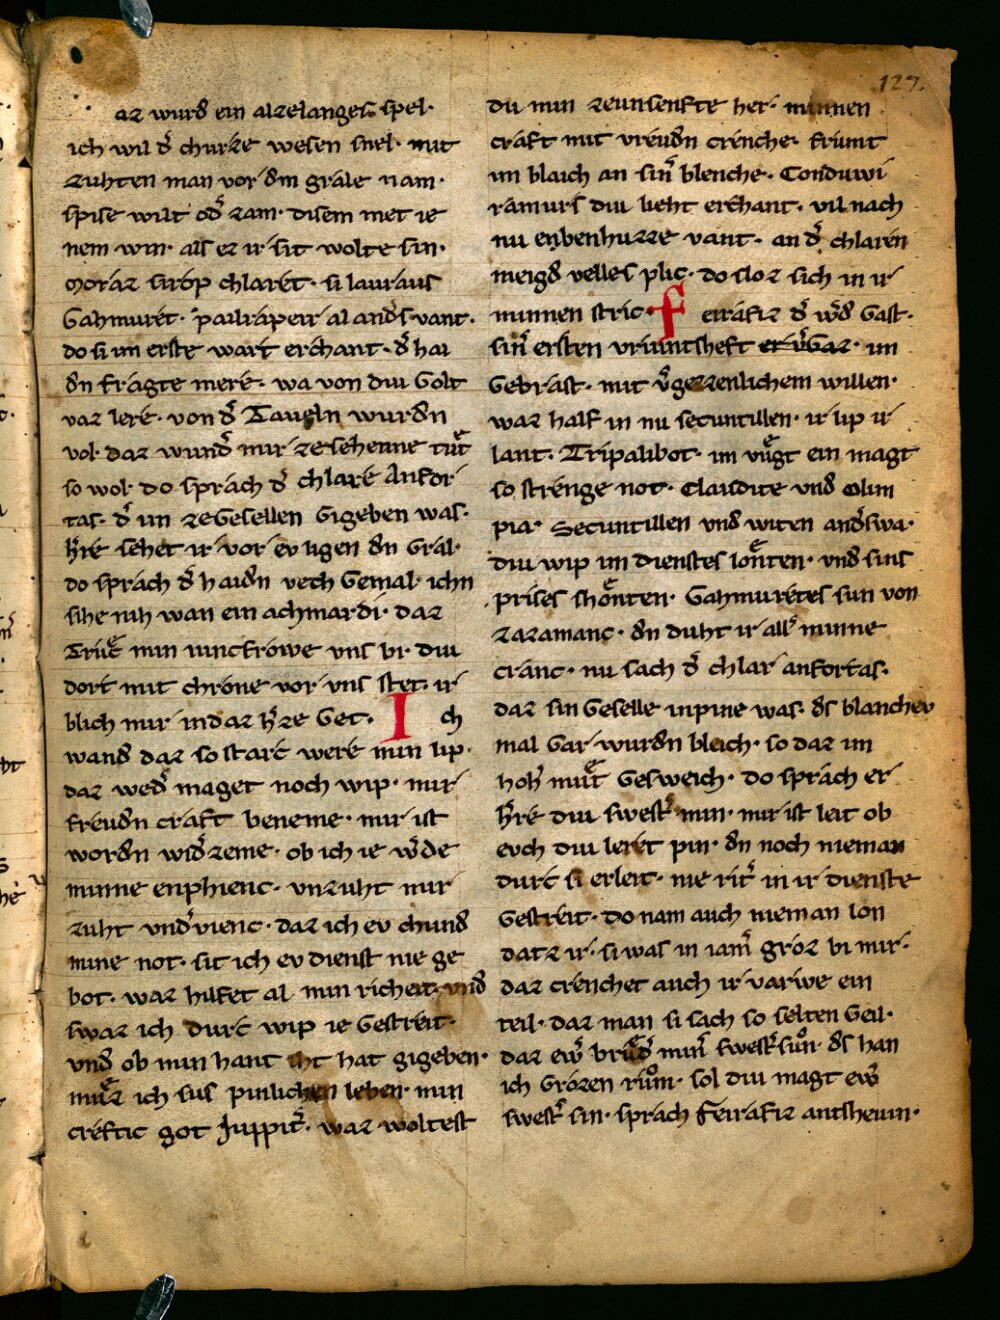 127.
az wurd ein alzelanger spel·
ich wil d᷑ churze wesen snel· mit
zuhten man vor dm grale nam·
spise wilt od᷑ zam· disem met ie
nem win· als ez ir sit wolte sin·
moraz sirop chlaret· fili laurius
Gahmuret· pailrapeir al and᷑s vant·
do si im erste wart erchant· d᷑ hai
dn fragte mere· wa von diu Golt
vaz lere· von d᷑ Taueln wurdn
vol· daz wund᷑ mir ze sehenne tuͤt
so wol· do sprach d᷑ chlare Anfor
tas· d᷑ im ze Gesellen gigeben was·
h᷑re sehet ir vor ev ligen dn Gral·
do sprach d᷑ haidn vech Gemal· ichn
sihe niht wan ein achmardi· daz
Truͤc min iuncfrowe vns bi· diu
dort mit chrone vor vns stet· ir
blich mir in daz h᷑ze Get· Ich
wand daz so starc were min lip·
daz wed᷑ maget noch wip· mir
freudn craft beneme· mir ist
wordn wid᷑zeme· ob ich ie w᷑de
minne enphienc· vnzuht mir
zuht vnd᷑vienc· daz ich ev chund
mine not· sit ich ev dienst nie ge
bot· waz hilfet al min richeit· vnd
swaz ich durc wip ie Gestreit·
vnd ob min hant iht hat gigeben·
muͤz ich sus pinlichen leben· min
creftic got Juppit᷑· waz woltest
du min zeunsenfte her· minnen
craft mit vreudn crenche· frumt
im blaich an sin᷑ blenche· Conduwi
ramurs diu lieht erchant· vil nach
nu enbenhuzze vant· an d᷑ chlaren
meigd velles plic· do sloz sich in ir
minnen stric· feirafiz d᷑ w᷑d Gast·
sin᷑ ersten vriuntsheft er v᷑Gaz· im
Gebrast· mit v᷑gezzenlichem willen·
waz half in nu secuntillen· ir lip ir
lant· Tripalibot· im vuͤgt ein magt
so strenge not· Claudite vnd Olim
pia· Secuntillen vnd witen and᷑swa·
diu wip im dienstes lonͤten· vnd sins
prises shoͤnten· Gahmuretes sun von
zazamanc· dn duht ir all᷑ minne
cranc· nu sach d᷑ chlar anfortas·
daz sin Geselle in pine was· ds blanchev
mal Gar wurdn bleich· so daz im
hoh᷑ muͤt Gesweich· do sprach er
h᷑re diu swest᷑ min· mir ist leit ob
euch diu leret pin· dn noch nieman
durc si erleit· nie rit᷑ in ir dienste
Gestreit· do nam auch nieman lon
datz ir· si was in iam᷑ groz bi mir·
daz crenchet auch ir varwe ein
teil· daz man si sach so selten Geil·
daz ew᷑ bruͤd᷑ min᷑ swest᷑ suͦn· ds han
ich Grozen ruͦm· sol diu magt ew᷑
swest᷑ sin· sprach feirafiz antshevin·